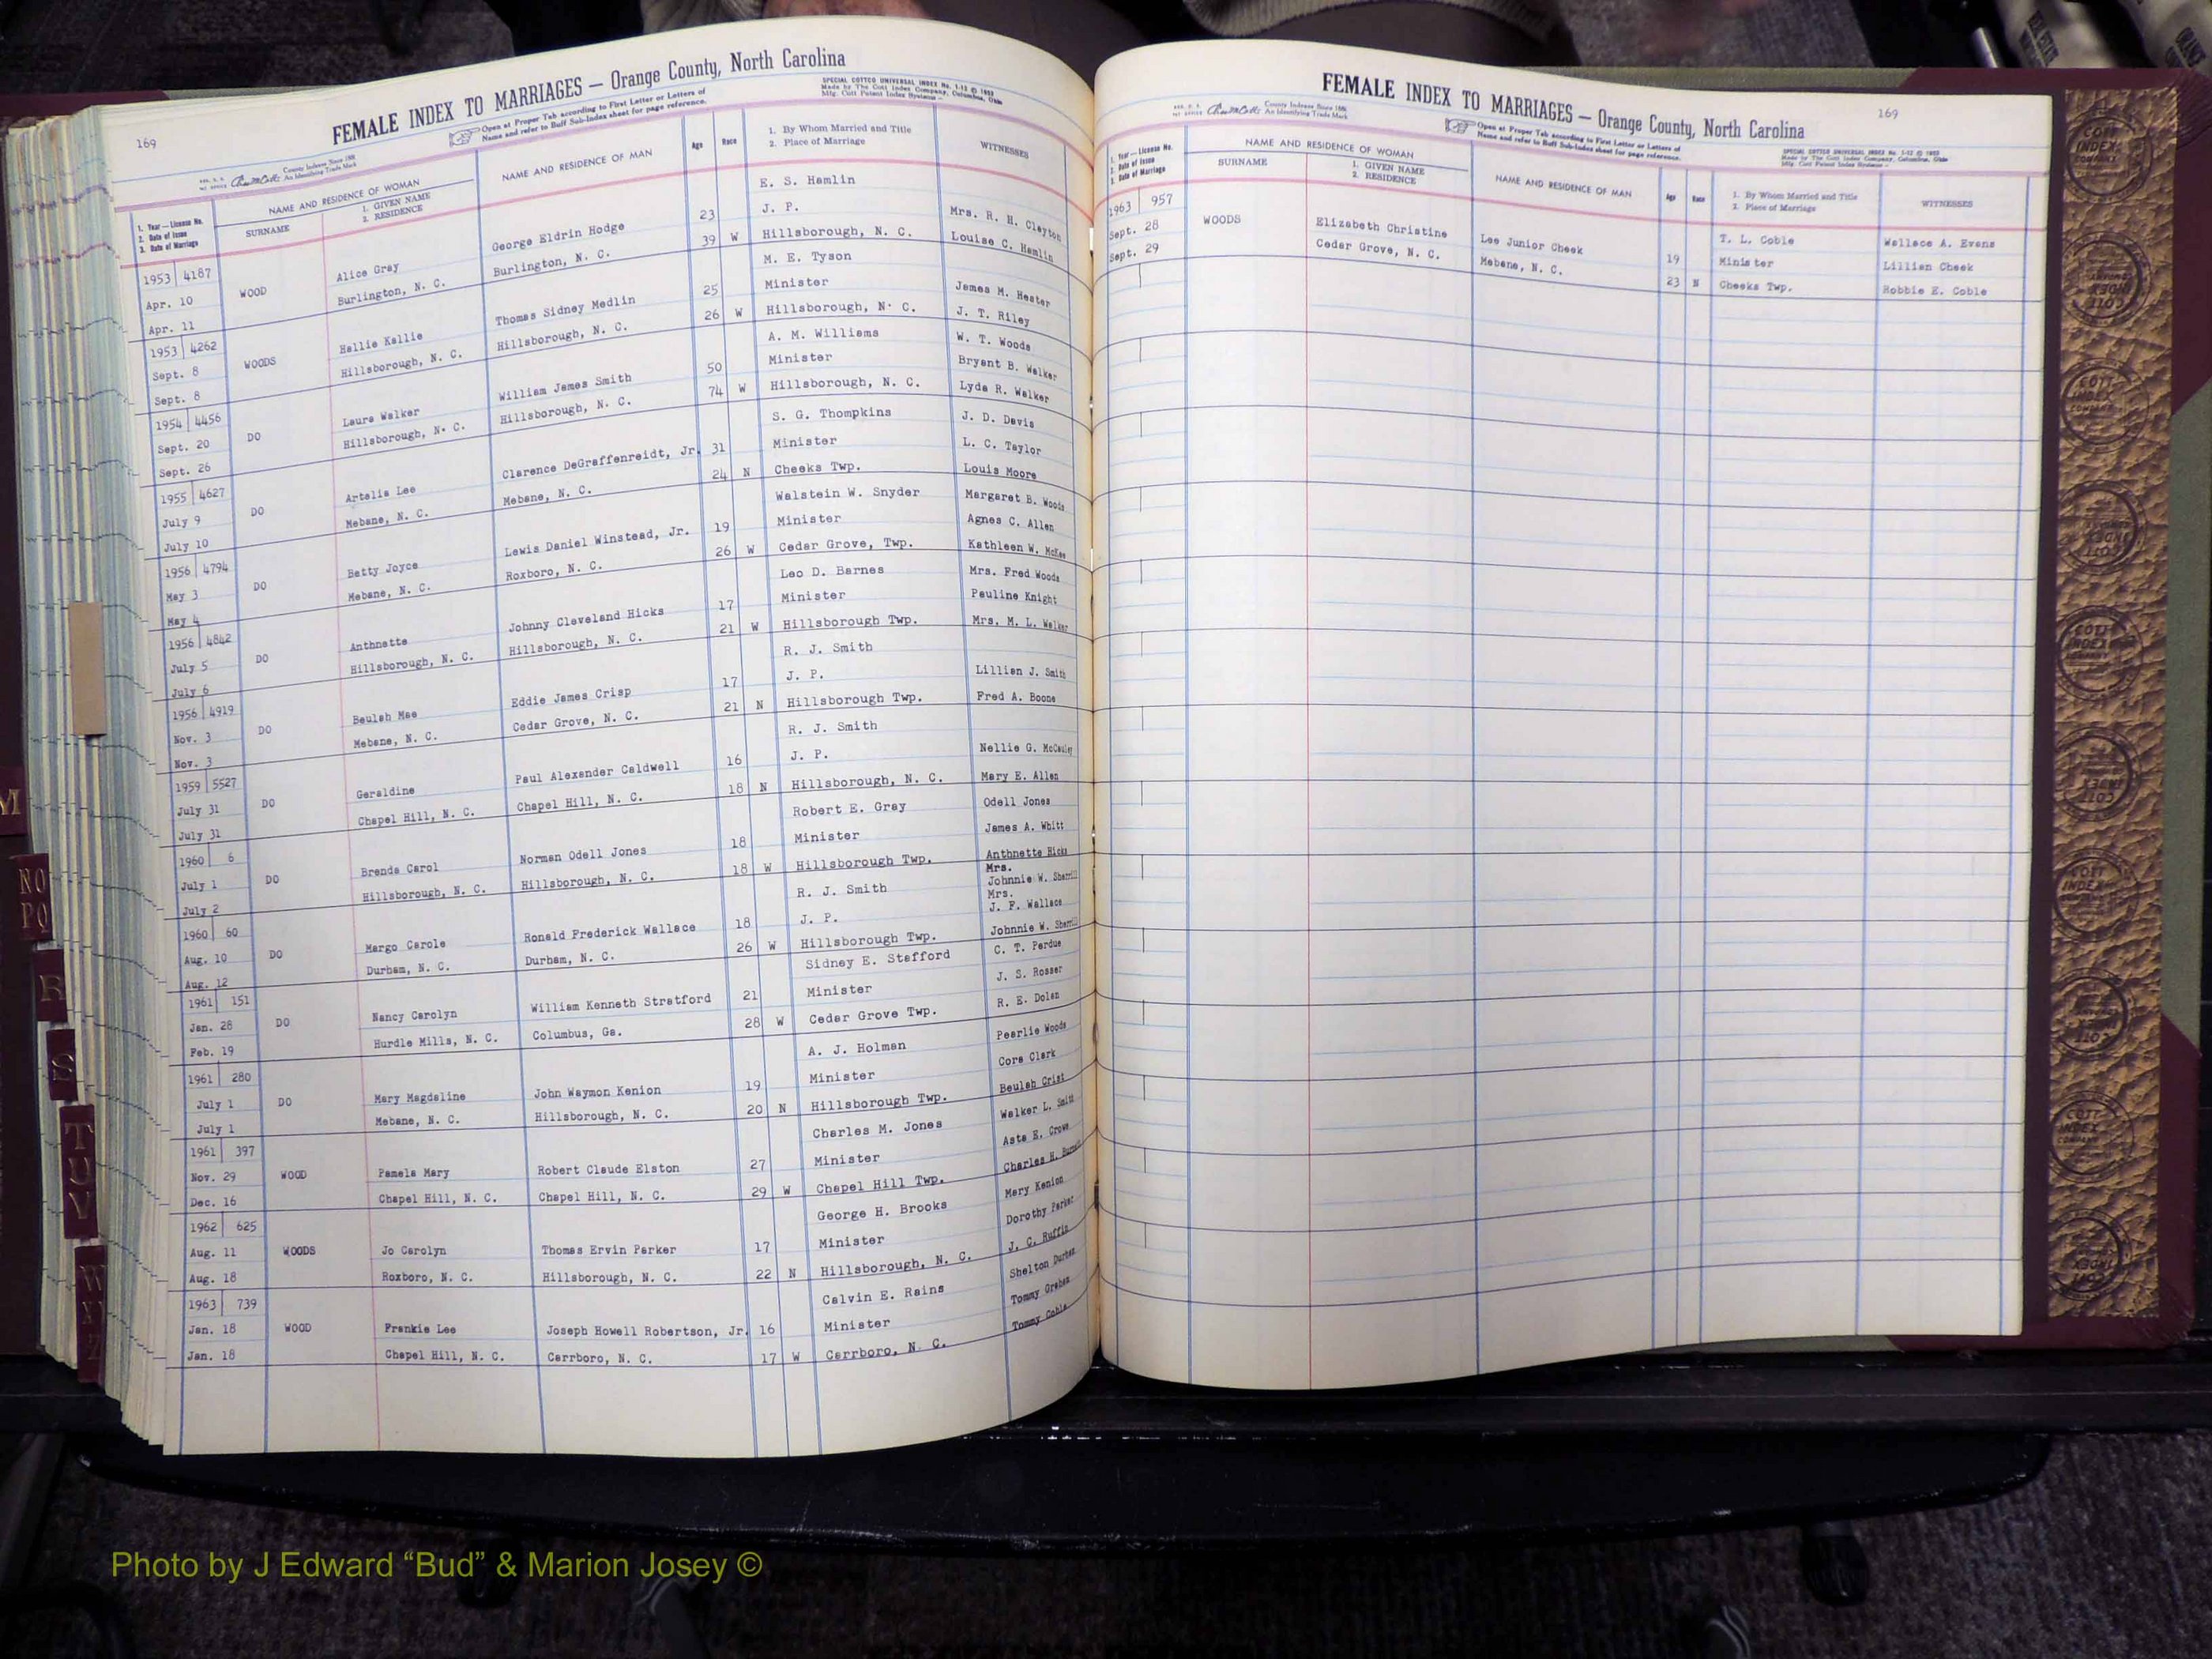 169
FEMALE INDEX TO MARRIAGES — Orange County, North Carolina
Open at Proper Tab according to First Letter or Letters of
Name and refer to Buff Sub-Index sheet for page reference.
SPECIAL COTTCO UNIVERSAL INDEX No. 1-12 © 1953
Made by The Cott Index Company, Columbus, Ohio
Mfg. Cott Patent Index Systems —
County Indexes Since 1888
An Identifying Trade Mark
1. Year — License No.
2. Date of Issue
3. Date of Marriage
NAME AND RESIDENCE OF WOMAN
SURNAME
1. GIVEN NAME
2. RESIDENCE
NAME AND RESIDENCE OF MAN
Age
Race
1. By Whom Married and Title
2. Place of Marriage
WITNESSES
1953 4187 Apr. 10 Apr. 11
WOOD
Alice Gray
Burlington, N. C.
George Eldrin Hodge
Burlington, N. C.
23
39 W
E. S. Hamlin
J. P.
Hillsborough, N. C.
Mrs. R. H. Clayton
Louise C. Hamlin
1953 4262 Sept. 8 Sept. 8
WOODS
Hallie Kallie
Hillsborough, N. C.
Thomas Sidney Medlin
Hillsborough, N. C.
25
26 W
M. E. Tyson
Minister
Hillsborough, N. C.
James M. Hester
J. T. Riley
W. T. Woods
1954 4456 Sept. 20 Sept. 26
DO
Laura Walker
Hillsborough, N. C.
William James Smith
Hillsborough, N. C.
50
74 W
A. M. Williams
Minister
Hillsborough, N. C.
Bryant B. Walker
Lyda R. Walker
1955 4627 July 9 July 10
DO
Artelia Lee
Mebane, N. C.
Clarence DeGraffenreidt, Jr.
Mebane, N. C.
31
24 N
S. G. Thompkins
Minister
Cheeks Twp.
J. D. Davis
L. C. Taylor
Louis Moore
1956 4794 May 3 May 4
DO
Betty Joyce
Mebane, N. C.
Lewis Daniel Winstead, Jr.
Roxboro, N. C.
19
26 W
Walstein W. Snyder
Minister
Cedar Grove, Twp.
Margaret B. Woods
Agnes C. Allen
Kathleen W. McKee
1956 4842 July 5 July 6
DO
Anthnette
Hillsborough, N. C.
Johnny Cleveland Hicks
Hillsborough, N. C.
17
21 W
Leo D. Barnes
Minister
Hillsborough Twp.
Mrs. Fred Woods
Pauline Knight
Mrs. M. L. Walker
1956 4919 Nov. 3 Nov. 3
DO
Beulah Mae
Mebane, N. C.
Eddie James Crisp
Cedar Grove, N. C.
17
21 N
R. J. Smith
J. P.
Hillsborough Twp.
Lillian J. Smith
Fred A. Boone
1959 5527 July 31 July 31
DO
Geraldine
Chapel Hill, N. C.
Paul Alexander Caldwell
Chapel Hill, N. C.
16
18 N
R. J. Smith
J. P.
Hillsborough, N. C.
Nellie G. McCauley
Mary E. Allen
1960 6 July 1 July 2
DO
Brenda Carol
Hillsborough, N. C.
Norman Odell Jones
Hillsborough, N. C.
18
18 W
Robert E. Gray
Minister
Hillsborough Twp.
Odell Jones
James A. Whitt
Anthnette Hicks
1960 60 Aug. 10 Aug. 12
DO
Margo Carole
Durham, N. C.
Ronald Frederick Wallace
Durham, N. C.
18
26 W
R. J. Smith
J. P.
Hillsborough Twp.
Mrs.
Johnnie W. Sherrill
Mrs.
J. F. Wallace
Johnnie W. Sherrill
1961 151 Jan. 28 Feb. 19
DO
Nancy Carolyn
Hurdle Mills, N. C.
William Kenneth Stratford
Columbus, Ga.
21
28 W
Sidney E. Stafford
Minister
Cedar Grove Twp.
C. T. Perdue
J. S. Rosser
R. E. Dolan
1961 280 July 1 July 1
DO
Mary Magdaline
Mebane, N. C.
John Waymon Kenion
Hillsborough, N. C.
19
20 N
A. J. Holman
Minister
Hillsborough Twp.
Pearlie Woods
Cora Clark
Beulah Crist
1961 397 Nov. 29 Dec. 16
WOOD
Pamela Mary
Chapel Hill, N. C.
Robert Claude Elston
Chapel Hill, N. C.
27
29 W
Charles M. Jones
Minister
Chapel Hill Twp.
Walker L. Smith
Asta E. Crowe
Charles H.
1962 625 Aug. 11 Aug. 18
WOODS
Jo Carolyn
Roxboro, N. C.
Thomas Ervin Parker
Hillsborough, N. C.
17
22 N
George H. Brooks
Minister
Hillsborough, N. C.
Mary Kenion
Dorothy Parker
J. C. Ruffin
1963 739 Jan. 18 Jan. 18
WOOD
Frankie Lee
Chapel Hill, N. C.
Joseph Howell Robertson, Jr.
Carrboro, N. C.
16
17 W
Calvin E. Rains
Minister
Carrboro, N. C.
Shelton Durham
Tommy Graham
Tommy Coble
FEMALE INDEX TO MARRIAGES — Orange County, North Carolina
169
County Indexes Since 1888
An Identifying Trade Mark
Open at Proper Tab according to First Letter or Letters of
Name and refer to Buff Sub-Index sheet for page reference.
SPECIAL COTTCO UNIVERSAL INDEX No. 1-12 © 1953
Made by The Cott Index Company, Columbus, Ohio
Mfg. Cott Patent Index Systems —
1. Year — License No.
2. Date of Issue
3. Date of Marriage
NAME AND RESIDENCE OF WOMAN
SURNAME
1. GIVEN NAME
2. RESIDENCE
NAME AND RESIDENCE OF MAN
Age
Race
1. By Whom Married and Title
2. Place of Marriage
WITNESSES
1963 957 Sept. 28 Sept. 29
WOODS
Elizabeth Christine
Cedar Grove, N. C.
Lee Junior Cheek
Mebane, N. C.
19
23 N
T. L. Coble
Minister
Cheeks Twp.
Wallace A. Evans
Lillian Cheek
Robbie E. Coble
M
NO
PQ
R
S
T
U
V
W
Photo by J Edward “Bud” & Marion Josey ©